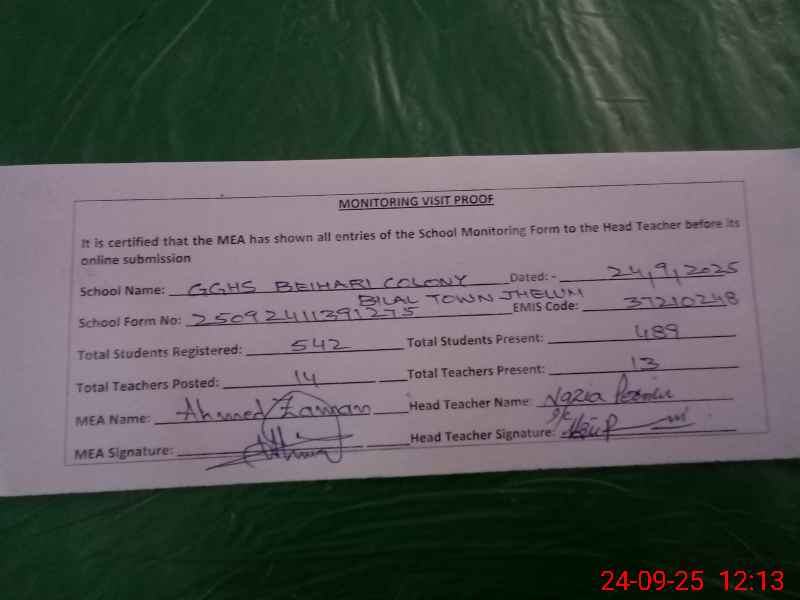 MONITORING VISIT PROOF
It is certified that the MEA has shown all entries of the School Monitoring Form to the Head Teacher before its
online submission
School Name: GGHS BEIHARI COLONY Dated: - 24,9,2025
BILAL TOWN JHELUM
School Form No: 25092411391275 EMIS Code: 37210248
Total Students Registered: 542 Total Students Present: 489
Total Teachers Posted: 14 Total Teachers Present: 13
MEA Name: Ahmed Zaman Head Teacher Name: Nazia
MEA Signature: Head Teacher Signature:
24-09-25 12:13